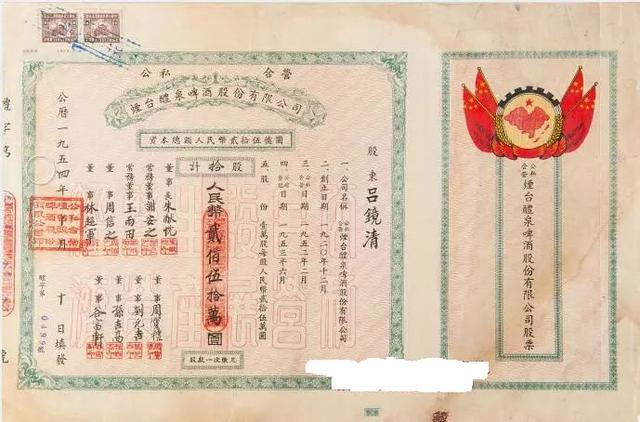 公私合營
煙台醴泉啤酒股份有限公司
資本總額人民幣貳拾伍億圓
股東 呂鏡清
一 公司名稱 公私合營 煙台醴泉啤酒股份有限公司
二 創立日期 一九二〇年十二月
三 公私合營日期 一九五二年二月
四 日期 一九五三年六月
五 股份 壹萬股每股人民幣貳拾伍萬圓
計拾股
人民幣貳佰伍拾萬圓
股款一次繳足
董事長
常務董事
常務董事 王雨田
董事 周信之
董事 林超軍
董事
董事
董事 孫吉高
董事 谷富軒
公曆一九五四年 月十日填發
醴字第0499號
公私合營 煙台醴泉啤酒股份有限公司股票